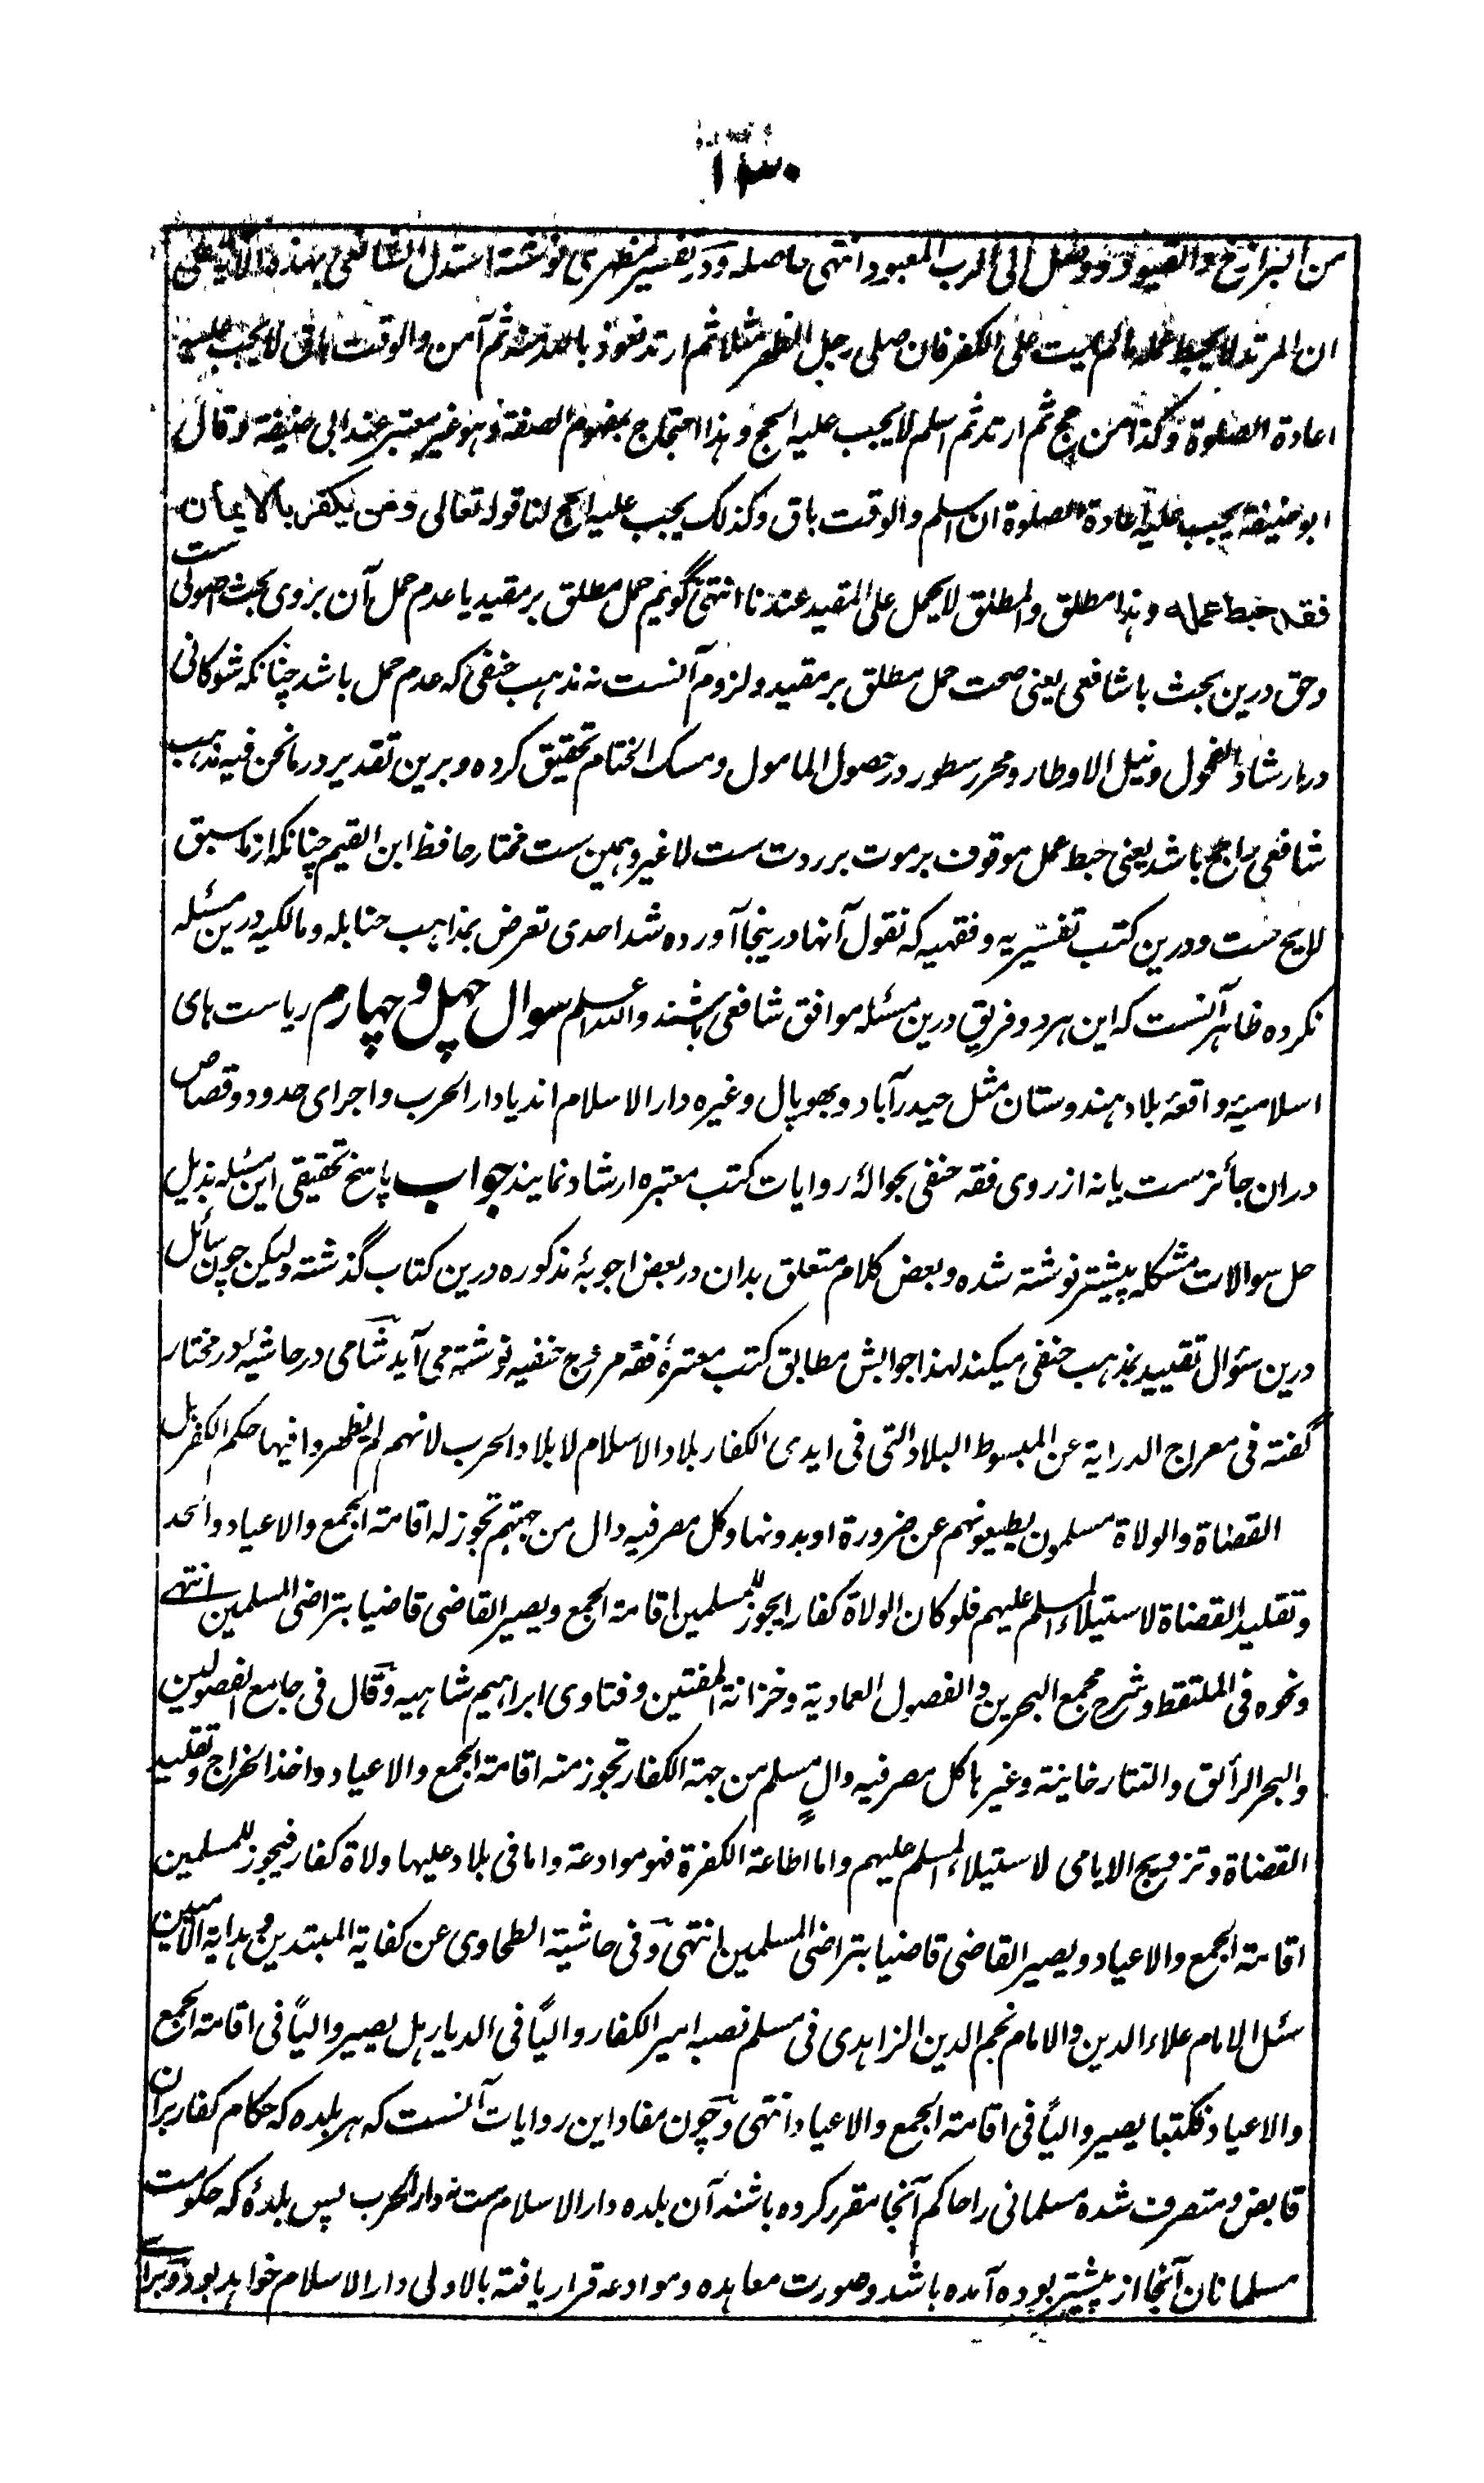 ۱۳۰
من البرازخ والقیود ووصل الی الرب المعبود انتهی حاصله و در تفسیر مظهری نوشته استدل الشافعی بهذه الآیة علی
ان المرتد لا یحبط عمله مالم یمت علی الکفر فان صلی رجل الظهر مثلا ثم ارتد نعوذ بالله منه ثم آمن والوقت باق لا یجب علیه
اعادة الصلوة وکذا من حج ثم ارتد ثم اسلم لا یجب علیه الحج وهذا احتجاج بمفهوم الصفة وهو غیر معتبر عند ابی حنیفة وقال
ابو حنیفة یجب علیه اعادة الصلوة ان اسلم والوقت باق وکذلک یجب علیه الحج لنا قوله تعالی ومن یکفر بالایمان
فقد حبط عمله وهذا مطلق والمطلق لا یحمل علی المقید عندنا انتهی گویم حمل مطلق بر مقید یا عدم حمل آن بر وی بحث اصولی ست
وحق درین بحث با شافعی یعنی صحت حمل مطلق بر مقید ولزوم آنست نه مذهب حنفی که عدم حمل باشد چنانکه شوکانی
در ارشاد الفحول ونیل الاوطار ومحرر سطور در حصول المامول ومسک الختام تحقیق کرده وبرین تقدیر در مانحن فیه مذهب
شافعی راجح باشد یعنی حبط عمل موقوف بر موت بر ردت ست لا غیر وهمین ست مختار حافظ ابن القیم چنانکه از ما سبق
لایح ست ودرین کتب تفسیریه وفقهیه که نقول آنها درینجا آورده شد احدی تعرض بمذاهب حنابله ومالکیه درین مسئله
نکرده ظاهر آنست که این هر دو فریق درین مسئله موافق شافعی باشند والله اعلم سوال چهل و چهارم ریاست های
اسلامیهٔ واقعهٔ بلاد هندوستان مثل حیدرآباد وبهوپال وغیره دار الاسلام اند یا دار الحرب واجرای حدود وقصاص
دران جائز ست یا نه از روی فقه حنفی بحوالهٔ روایات کتب معتبره ارشاد نمایند جواب پاسخ تحقیقی این مسئله بذیل
حل سوالات مشکله پیشتر نوشته شده وبعض کلام متعلق بدان در بعض اجوبهٔ مذکوره درین کتاب گذشته ولیکن چون سائل
درین سئوال تقیید بمذهب حنفی میکند لهذا جوابش مطابق کتب معتبرهٔ فقه مروج حنفیه نوشته می آید شامی در حاشیهٔ در مختار
گفته فی معراج الدرایة عن المبسوط البلاد التی فی ایدی الکفار بلاد الاسلام لا بلاد الحرب لانهم لم یظهروا فیها حکم الکفر بل
القضاة والولاة مسلمون یطیعونهم عن ضرورة او بدونها وکل مصر فیه دال من جهتهم تجوز له اقامة الجمع والاعیاد والحد
وتقلید القضاة لاستیلاء المسلم علیهم فلو کان الولاة کفارا یجوز للمسلمین اقامة الجمع ویصیر القاضی قاضیا بتراضی المسلمین انتهے
ونحوه فی الملتقط وشرح مجمع البحرین والفصول العمادیة وخزانة المفتین وفتاوی ابراهیم شاهیه وقال فی جامع الفصولین
والبحر الرائق والتتارخانیة وغیرها کل مصر فیه والٍ مسلم من جهة الکفار تجوز منه اقامة الجمع والاعیاد واخذ الخراج وتقلید
القضاة وتزویج الایامی لاستیلاء المسلم علیهم واما اطاعة الکفرة فهو موادعة واما فی بلاد علیها ولاة کفار فیجوز للمسلمین
اقامة الجمع والاعیاد ویصیر القاضی قاضیا بتراضی المسلمین انتهی وفی حاشیة الطحاوی عن کفایة المبتدین وهدایة الامین
سئل الامام علاء الدین والامام نجم الدین الزاهدی فی مسلم نصبه امیر الکفار والیًا فی الدیار هل یصیر والیًا فی اقامة الجمع
والاعیاد فکتبا یصیر والیًا فی اقامة الجمع والاعیاد انتهی وچون مفاد این روایات آنست که هر بلده که حکام کفار بران
قابض ومتصرف شده مسلمانی را حاکم آنجا مقرر کرده باشند آن بلده دار الاسلام ست نه دار الحرب پس بلدهٔ که حکومت
مسلمانان آنجا از پیشتر بوده آمده باشد وصورت معاهده وموادعه قرار یافته بالاولی دار الاسلام خواهد بود